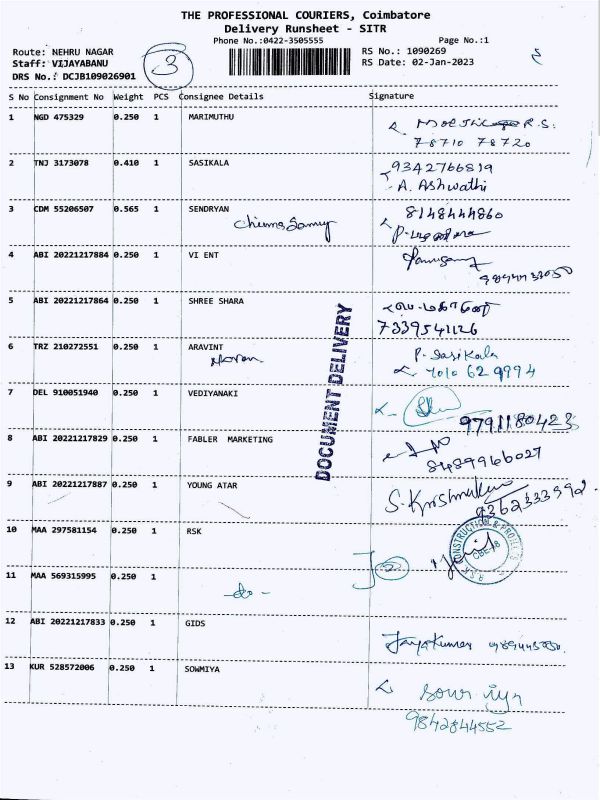 THE PROFESSIONAL COURIERS, Coimbatore
Delivery Runsheet - SITR
Phone No.:0422-3505555 Page No.:1
Route: NEHRU NAGAR RS No.: 1090269
Staff: VIJAYABANU RS Date: 02-Jan-2023
DRS No.: DCJB109026901
3
S No Consignment No Weight PCS Consignee Details Signature
1 NGD 475329 0.250 1 MARIMUTHU
78710 78720
2 TNJ 3173078 0.410 1 SASIKALA 9342766819
A. Ashwathi
3 CDM 55206507 0.565 1 SENDRYAN 8148444860
4 ABI 20221217884 0.250 1 VI ENT
5 ABI 20221217864 0.250 1 SHREE SHARA
7339541126
6 TRZ 210272551 0.250 1 ARAVINT P. Sasikala
7010 629994
7 DEL 910051940 0.250 1 VEDIYANAKI
9791180423
DOCUMENT DELIVERY
8 ABI 20221217829 0.250 1 FABLER MARKETING
8489966027
9 ABI 20221217887 0.250 1 YOUNG ATAR S. Krishnakumar
9362333392
10 MAA 297581154 0.250 1 RSK
2
11 MAA 569315995 0.250 1
-do-
12 ABI 20221217833 0.250 1 GIDS
Jayakumar
13 KUR 528572006 0.250 1 SOWMIYA
9842844552